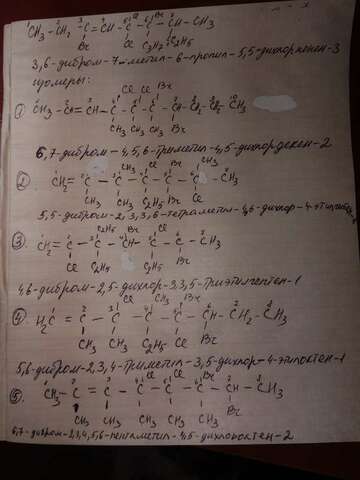 CH₃ – CH₂ – C = CH – C – C – CH – CH₃
Br Cl C₃H₇ C₂H₅
3,6-дибром-7-метил-6-пропил-5,5-дихлорнонен-3
изомеры:
① CH₃ – CH = CH – C – C – C – CH – CH₂ – CH₂ – CH₃
CH₃ CH₃ Br
6,7-дибром-4,5,6-триметил-4,5-дихлордецен-2
② CH₂ = C – C – C – C – C – CH₃
CH₃ CH₃ C₂H₅ Br Cl
5,5-дибром-2,3,3,6-тетраметил-4,6-дихлор-4-этилгепт
③ CH₂ = C – C – CH – C – C – CH₃
Cl C₂H₅ C₂H₅ Br
4,6-дибром-2,5-дихлор-3,3,5-триэтилгептен-1
④ H₂C = C – C – C – C – CH – CH₂ – CH₃
CH₃ CH₃ C₂H₅ Cl Br
5,6-дибром-2,3,4-триметил-3,5-дихлор-4-этилоктен-1
⑤ CH₃ – C = C – C – C – C – CH – CH₃
CH₃ CH₃ CH₃ CH₃ CH₃ Br
6,7-дибром-2,3,4,5,6-пентаметил-4,5-дихлороктен-2